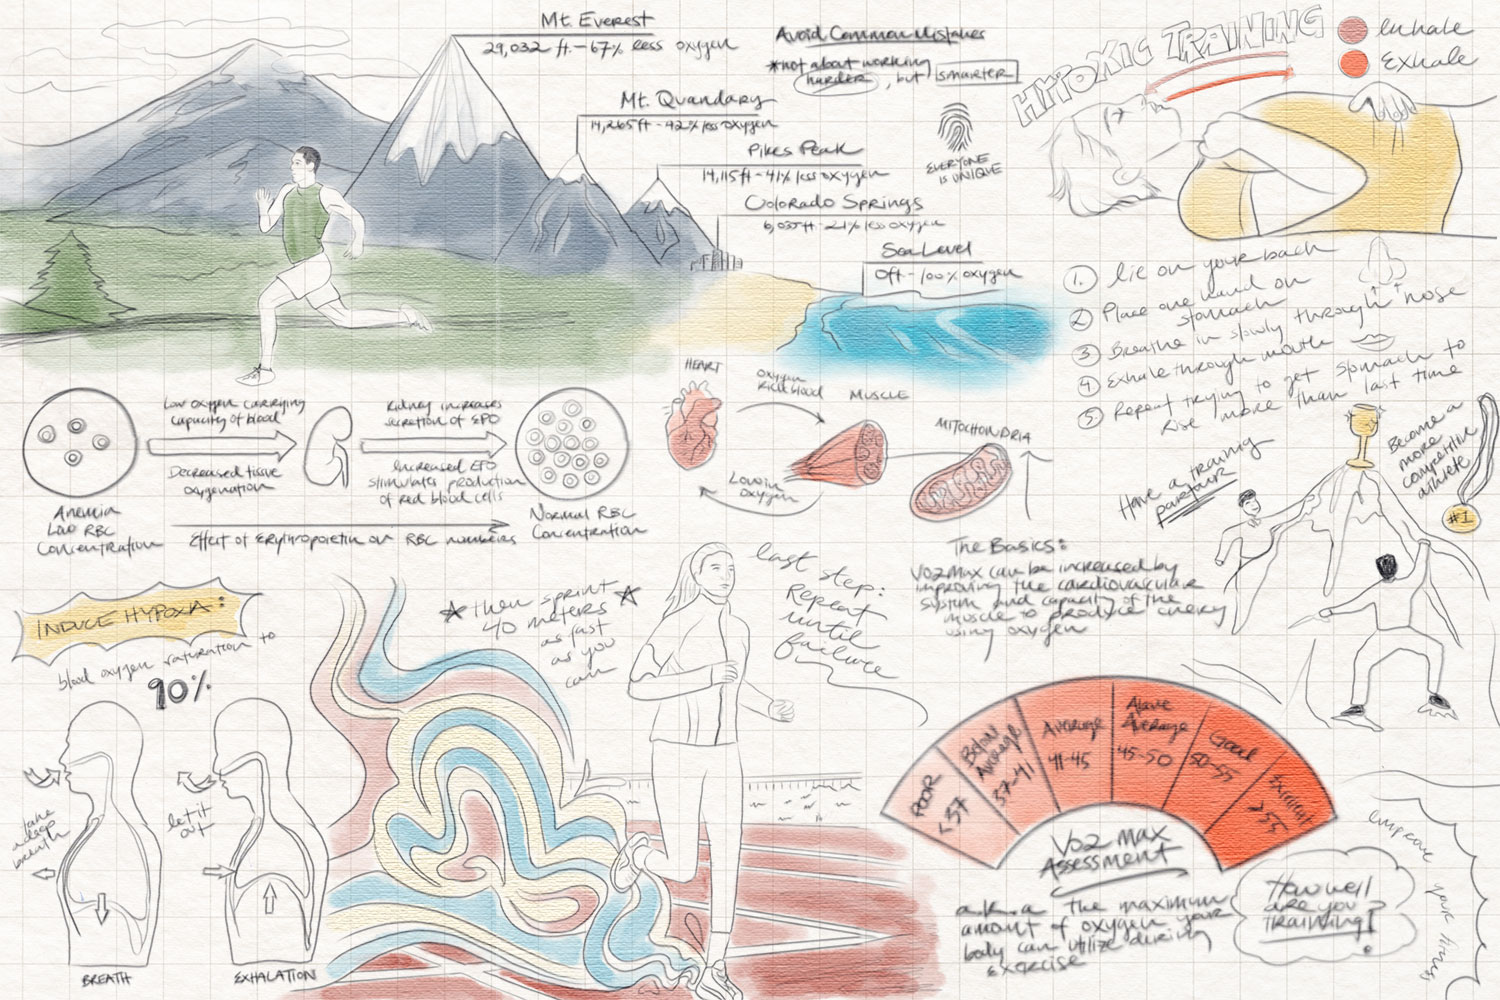 Mt. Everest
29,032 ft. - 67% less oxygen
Mt. Quandary
14,265 ft - 42% less oxygen
Pikes Peak
14,115 ft - 41% less oxygen
Colorado Springs
6,035 ft - 21% less oxygen
Sea Level
0ft - 100% oxygen
Avoid Common Mistakes
*not about working
harder, but smarter
EVERYONE
IS UNIQUE
TRAINING
Inhale
Exhale
1. lie on your back
2 Place one hand on
stomach
3 Breathe in slowly through nose
4 Exhale through mouth
5 Repeat trying to get stomach to
rise more than last time
Low oxygen carrying
capacity of blood
Decreased tissue
oxygenation
Kidney increases
secretion of EPO
Increased EPO
stimulates production
of red blood cells
Anemia
Low RBC
Concentration
Effect of Erythropoietin on RBC numbers
Normal RBC
Concentration
HEART
oxygen
Rich blood
MUSCLE
Low in
oxygen
MITOCHONDRIA
The Basics:
VO2 Max can be increased by
improving the cardiovascular
system and capacity of the
muscle to produce energy
using oxygen
Have a training
partner
Become a
more
competitive
athlete
#1
INDUCE HYPOXIA:
blood oxygen saturation to
90%
take
a deep
breath
let it
out
BREATH
EXHALATION
then sprint
40 meters
as fast
as you
can
last step:
Repeat
until
failure
POOR
<37
Below
Average
37-41
Average
41-45
Above
Average
45-50
Good
50-55
Excellent
>55
VO2 Max
Assessment
a.k.a the maximum
amount of oxygen your
body can utilize during
exercise
How well
are you
training?!
improve your fitness